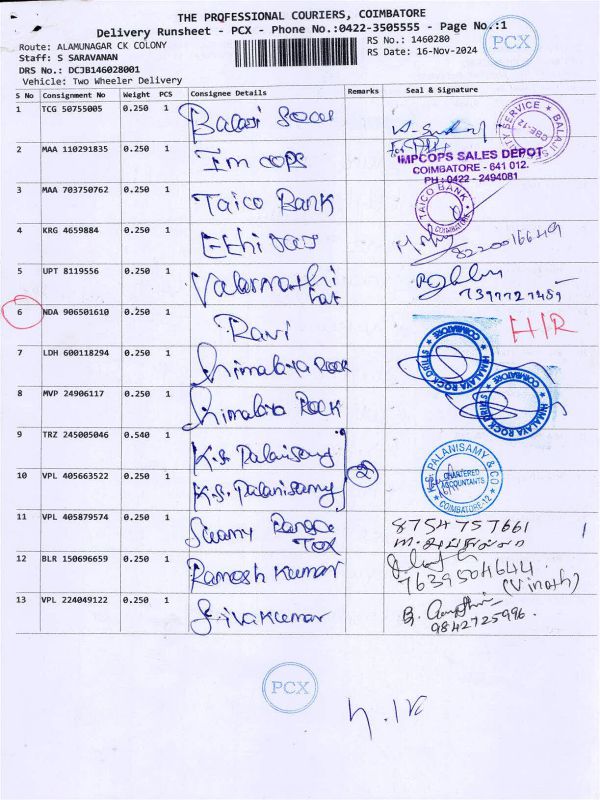 THE PROFESSIONAL COURIERS, COIMBATORE
Delivery Runsheet - PCX - Phone No.:0422-3505555 - Page No.:1
Route: ALAMUNAGAR CK COLONY
RS No.: 1460280
Staff: S SARAVANAN
RS Date: 16-Nov-2024
DRS No.: DCJB146028001
Vehicle: Two Wheeler Delivery
PCX
S No Consignment No Weight PCS Consignee Details Remarks Seal & Signature
1 TCG 50755005 0.250 1 Balaji
BALAJI SECURITY SERVICE CBE-12
2 MAA 110291835 0.250 1 Im cops
IMPCOPS SALES DEPOT
COIMBATORE - 641 012.
PH: 0422 - 2494081
3 MAA 703750762 0.250 1 Taico Bank
TAICO BANK COIMBATORE
4 KRG 4659884 0.250 1
8220016649
5 UPT 8119556 0.250 1 Valarmathi
7397727489
6 NDA 906501610 0.250 1 Ravi H/R
7 LDH 600118294 0.250 1 Himalaya Rock
HIMALAYA ROCK DRILLS COIMBATORE
8 MVP 24906117 0.250 1 Himalaya Rock
HIMALAYA ROCK DRILLS COIMBATORE
9 TRZ 245005046 0.540 1 K.S. Palanisamy
2
K.S. PALANISAMY & CO CHARTERED ACCOUNTANTS COIMBATORE-12
10 VPL 405663522 0.250 1 K.S. Palanisamy
11 VPL 405879574 0.250 1 Swamy Ranga Tex
8754757661
12 BLR 150696659 0.250 1 Ramesh Kumar
7639504644
(Vinoth)
13 VPL 224049122 0.250 1 Siva Kumar
9842725996.
PCX